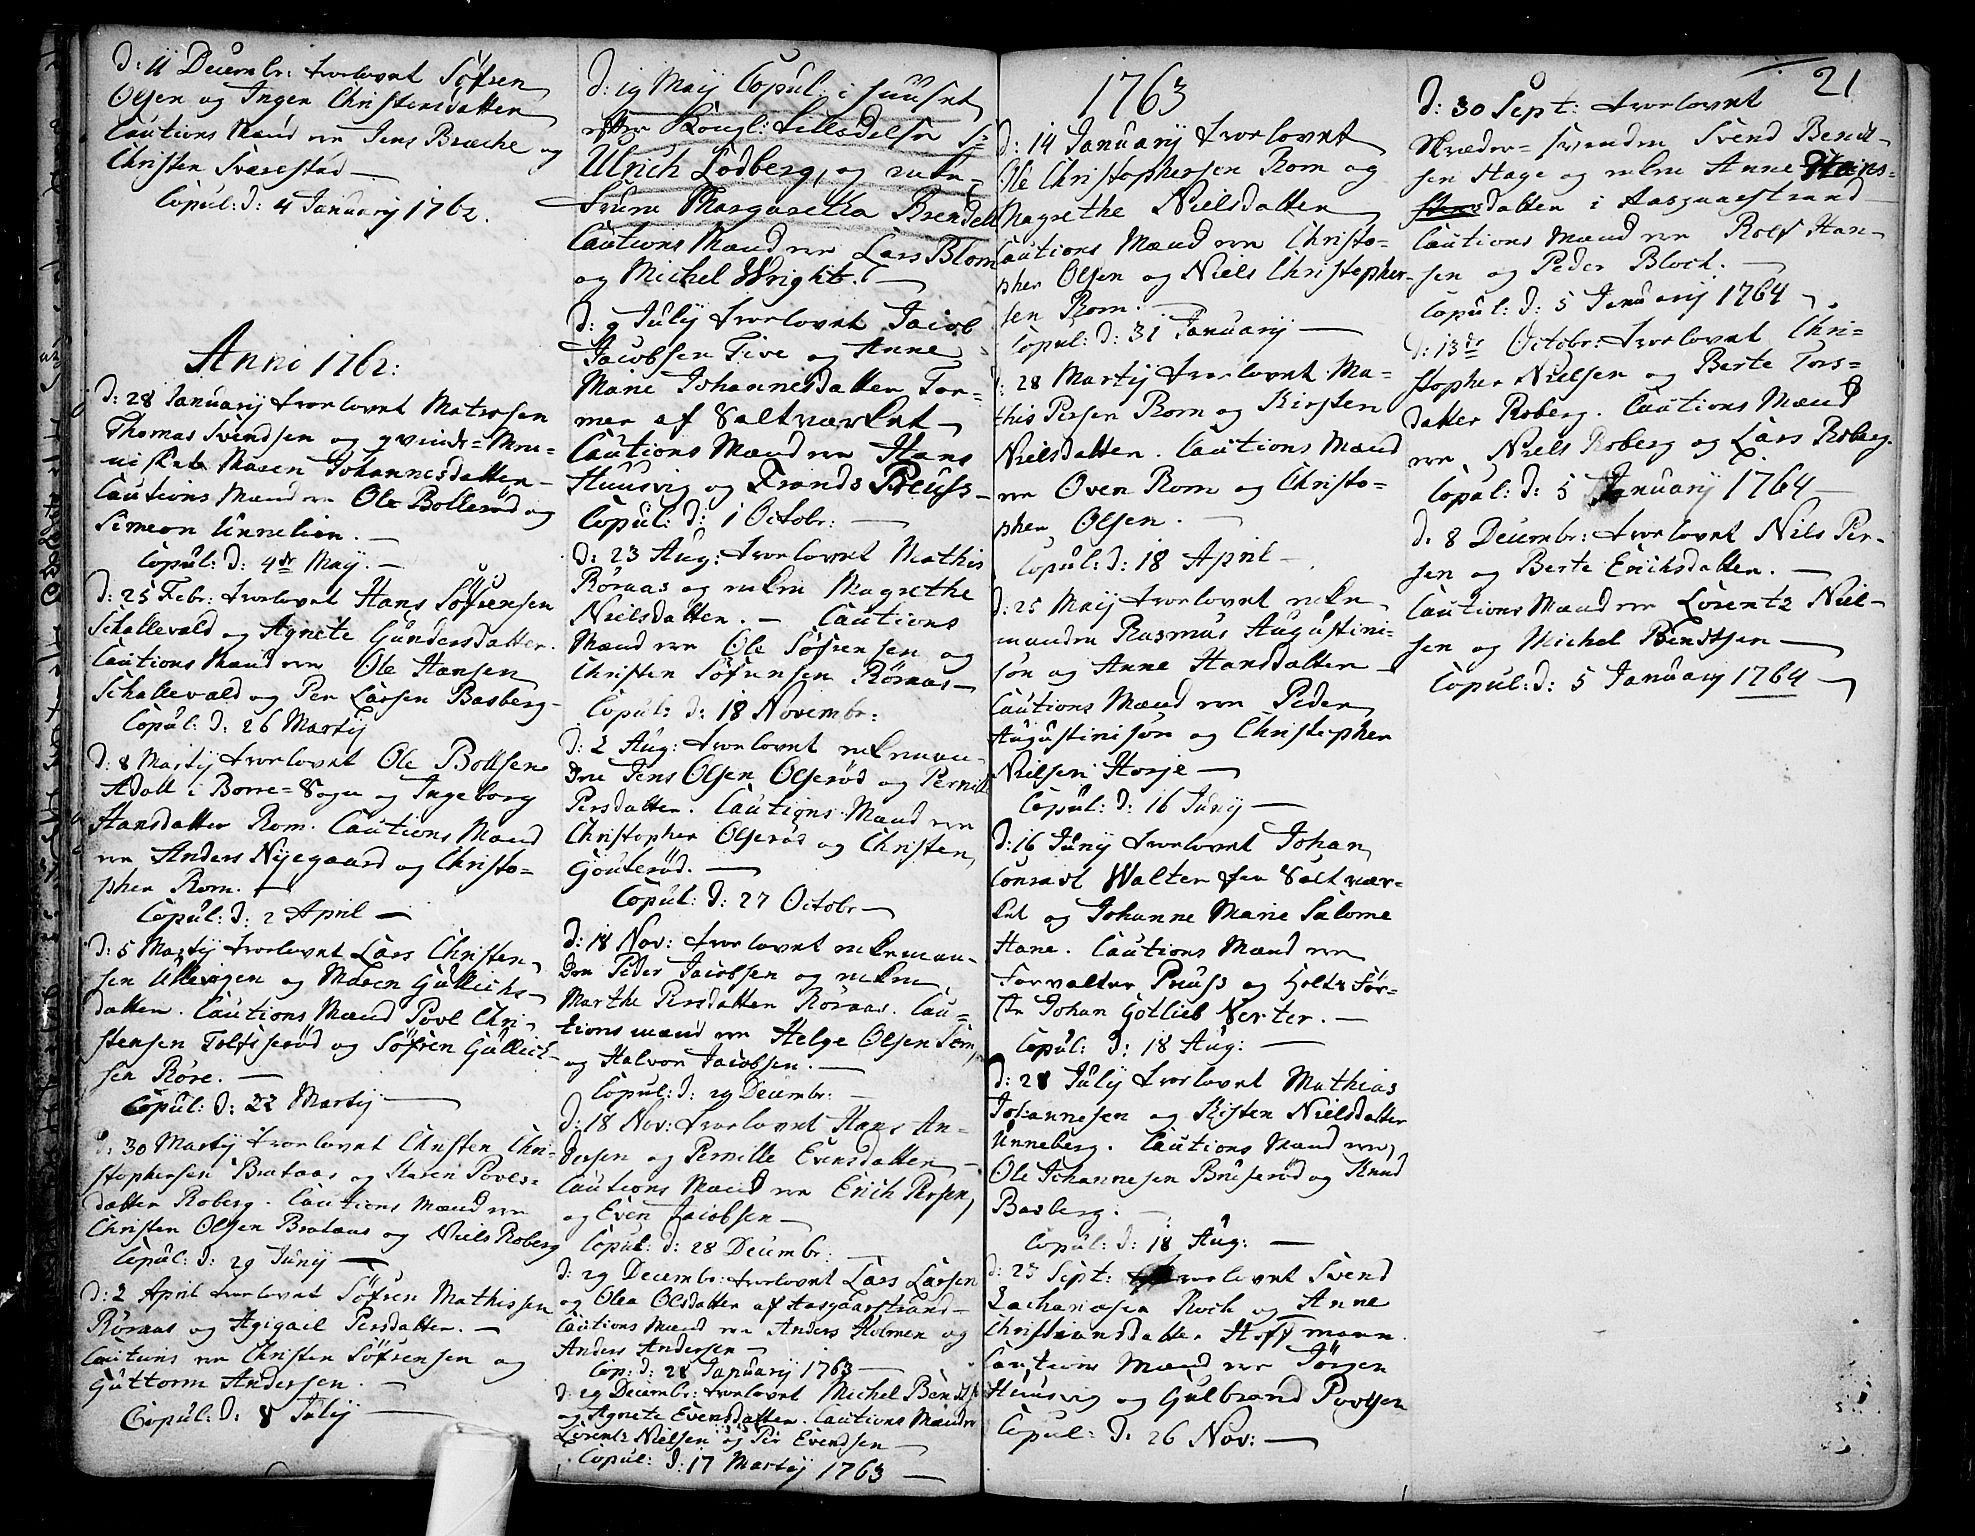 d: 11 Decembr: trolovet Söfren
Olsen og Ingen Christensdatter
Cautions Mænd ere Jens Bræche og
Christen Svarestad
Copul: d: 4 Januarij 1762.
Anni 1762:
d: 28 Januarij trolovet Matrosen
Thomas Svendsen og qvinde-Men-
nisket Maren Johannesdatter
Cautions Mænd ere Ole Bollerød og
Simeon Unnelien.
Copul: d: 4de Maij.
d: 25 Febr: trolovet Hans Söfrensen
Schallevald og Agnete Gundersdatter.
Cautions Mænd ere Ole Hansen
Schallevald og Per Larsen Basberg
Copul: d: 26 Martij
d: 8 Martij trolovet Ole Bottsen
Adall i Borre-Sogn og Ingeborg
Hansdatter Rom. Cautions Mænd
ere Anders Nyegaard og Christo-
pher Rom.
Copul: d: 2 April
d: 5 Martij trolovet Lars Christen-
sen Ullevigen og Maren Gullichs-
datter. Cautions Mænd Povl Chri-
stensen Tolfsseröd og Söfren Gullich-
sen Röre.
Copul: d: 22 Martij
d: 30 Martij trolovet Christen Chri-
stophersen Brataas og Karen Povels-
datter Roberg. Cautions Mænd ere
Christen Olsen Brataas og Niels Roberg
Copul: d: 29 Junij
d: 2 April trolovet Söfren Mathissen
Röraas og Agigail Persdatter.
Cautions ere Christen Söfrensen og
Guttorm Andersen.
Copul: d: 8 Julij
d: 19 Maij Copul: i Huuset
efter Kongl: tilladelse Sr
Ulrich Lodberg, og enke-
Frue Margaretha Brendell
Cautions Mænd ere Lars Blom
og Michel Wright.
d: 9 Julij trolovet Jacob
Jacobsen Five og Anne
Marie Johannesdatter For-
mer af Saltværket
Cautions Mænd ere Hans
Huusvig og Frands Preuss
Copul: d: 1 Octobr:
d: 23 Aug: trolovet Mathis
Röraas og enken Magrethe
Nielsdatter. Cautions
Mænd ere Ole Söfrensen og
Christen Söfrensen Röraas
Copul: d: 18 Novembr:
d: 2 Aug: trolovet enkeman-
den Jens Olsen Olseröd og Pernille
Persdatter. Cautions Mænd ere
Christopher Olseröd og Christen
Gouteröd.
Copul: d: 27 Octobr
d: 18 Nov: trolovet enkeman-
den Peder Jacobsen og enken
Marthe Persdatter Röraas. Cau-
tionsmænd ere Helge Olsen Sem
og Halvor Jacobsen.
Copul: d: 29 Decembr:
d: 18 Nov: trolovet Hans An-
dersen og Pernille Evensdatter
Cautions Mænd ere Erich Persen
og Even Jacobsen
Copul: d: 28 Decembr:
d: 29 Decembr: trolovet Lars Larsen
og Olea Olsdatter af Aasgaarstrand
Cautions Mænd ere Anders Holmen og
Anders Andersen
Cop: d: 28 Januarij 1763
d: 29 Decembr: trolovet Michel Bendtsen
og Agnete Evensdatter. Cautions Mænd ere
Lorentz Nielsen og Per Evendsen
Copul: d: 17 Martij 1763
1763
d: 14 Januarij trolovet
Ole Christophersen Rom og
Magrethe Nielsdatter
Cautions Mænd ere Christo-
pher Olsen og Niels Christopher-
sen Rom.
Copul: d: 31 Januarij
d: 28 Martij trolovet Ma-
this Persen Rom og Kirsten
Nielsdatter. Cautions Mænd
ere Oven Rom og Christo-
pher Olsen.
Copul: d: 18 April
d: 25 Maij trolovet enke-
manden Rasmus Augustini-
son og Anne Hansdatter
Cautions Mænd ere Peder
Augustinison og Christopher
Nielsen Horje
Copul: d: 16 Junij
d: 16 Junij trolovet Johan
Conradt Walter fra Saltvær-
ket og Johanne Marie Salome
Hane. Cautions Mænd ere
Forvalter Preuss og Holtz För-
ster Johan Gotlieb Nerter.
Copul: d: 18 Aug:
d: 28 Julij trolovet Mathias
Johannesen og Kisten Nielsdatter
Unneberg. Cautions Mænd ere
Ole Johannesen Bruseröd og Knud
Basberg.
Copul: d: 18 Aug:
d: 23 Sept: trolovet Svend
Zachariasen Roch og Anne
Christiansdatter Hoffmann.
Cautions Mænd ere Jörgen
Huusvig og Gulbrand Povlsen
Copul: d: 26 Nov:
21
d: 30 Sept: trolovet
Skræder-svenden Svend Bendt-
sen Hage og enken Anne Hans-
datter i Aasgaarstrand
Cautions Mænd ere Rolf Han-
sen og Peder Bloch.
Copul: d: 5 Januarij 1764
d: 13de Octobr: trolovet Chri-
stopher Nielsen og Berte Tors-
datter Roberg. Cautions Mænd
ere Niels Roberg og Lars Roberg.
Copul: d: 5 Januarij 1764
d: 8 Decembr: trolovet Niels Per-
sen og Berte Erichsdatter.
Cautions Mænd ere Lorentz Niel-
sen og Michel Bendtsen
Copul: d: 5 Januarij 1764